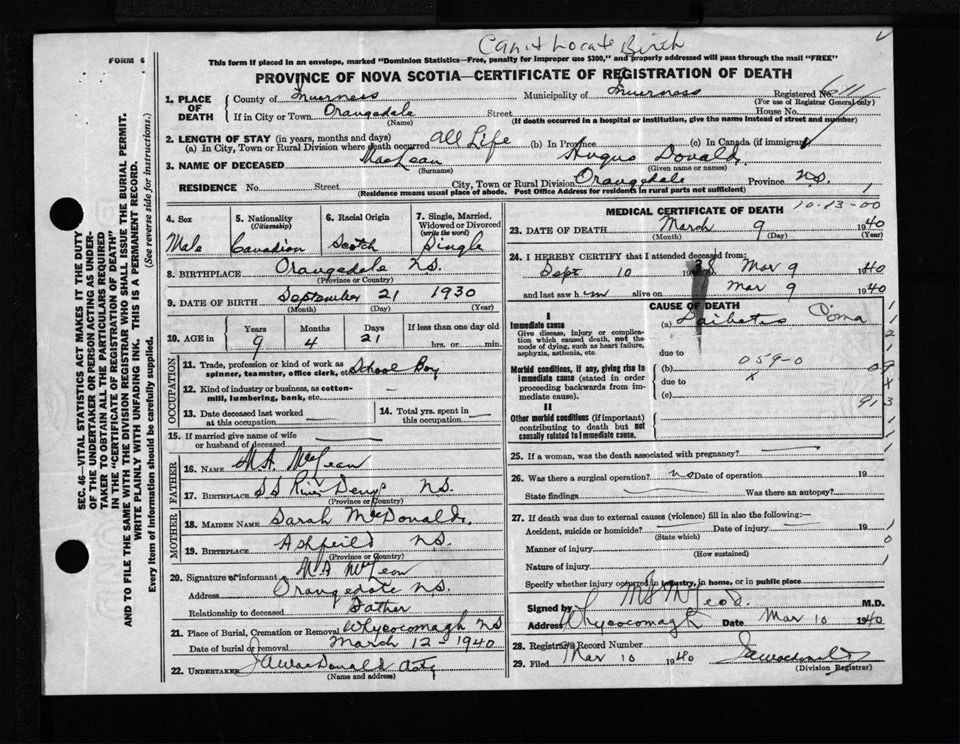 Can't Locate Birth
FORM 6
This form if placed in an envelope, marked "Dominion Statistics—Free, penalty for improper use $300," and properly addressed will pass through the mail "FREE"
PROVINCE OF NOVA SCOTIA—CERTIFICATE OF REGISTRATION OF DEATH
SEC. 46—VITAL STATISTICS ACT MAKES IT THE DUTY
OF THE UNDERTAKER OR PERSON ACTING AS UNDER-
TAKER TO OBTAIN ALL THE PARTICULARS REQUIRED
IN THE "CERTIFICATE OF REGISTRATION OF DEATH"
AND TO FILE THE SAME WITH THE DIVISION REGISTRAR WHO SHALL ISSUE THE BURIAL PERMIT.
WRITE PLAINLY WITH UNFADING INK. THIS IS A PERMANENT RECORD.
Every item of information should be carefully supplied. (See reverse side for instructions.)
1. PLACE OF DEATH
County of Inverness Municipality of Inverness Registered No. 11
(For use of Registrar General only)
If in City or Town Orangedale Street House No.
(Name) (If death occurred in a hospital or institution, give the name instead of street and number)
2. LENGTH OF STAY (in years, months and days)
(a) In City, Town or Rural Division where death occurred All Life (b) In Province (c) In Canada (if immigrant)
3. NAME OF DECEASED MacLean Angus Donald
(Surname) (Given name or names)
RESIDENCE No. Street City, Town or Rural Division Orangedale Province N.S. 1
(Residence means usual place of abode. Post Office Address for residents in rural parts not sufficient)
4. Sex
Male
5. Nationality
(Citizenship)
Canadian
6. Racial Origin
Scotch
7. Single, Married,
Widowed or Divorced
(write the word)
Single
8. BIRTHPLACE Orangedale N.S.
(Province or Country)
9. DATE OF BIRTH September 21 1930
(Month) (Day) (Year)
10. AGE in Years Months Days If less than one day old
9 4 21 hrs. or min.
OCCUPATION
11. Trade, profession or kind of work as
spinner, teamster, office clerk, etc. School Boy
12. Kind of industry or business, as cotton-
mill, lumbering, bank, etc. —
13. Date deceased last worked
at this occupation —
14. Total yrs. spent in
this occupation —
15. If married give name of wife
or husband of deceased —
FATHER
16. NAME M.A. McLean
17. BIRTHPLACE S S River Denys N.S.
(Province or Country)
MOTHER
18. MAIDEN NAME Sarah MacDonald
19. BIRTHPLACE Ashfeild N.S.
(Province or Country)
20. Signature of informant M.A. McLean
Address Orangedale N.S.
Relationship to deceased Father
21. Place of Burial, Cremation or Removal Whycocomagh N.S
Date of burial or removal March 12 1940
22. UNDERTAKER
(Name and address)
MEDICAL CERTIFICATE OF DEATH
10-13-00
23. DATE OF DEATH March 9 1940
(Month) (Day) (Year)
24. I HEREBY CERTIFY that I attended deceased from:
Sept 10 Mar 9 1940
and last saw him alive on Mar 9 1940
CAUSE OF DEATH
I
Immediate cause
Give disease, injury or complica-
tion which caused death, not the
mode of dying, such as heart failure,
asphyxia, asthenia, etc.
(a) Daibetis Coma
due to
Morbid conditions, if any, giving rise to
immediate cause (stated in order
proceeding backwards from im-
mediate cause).
(b) 059-0
due to x
(c)
II
Other morbid conditions (if important)
contributing to death but not
causally related to immediate cause.
25. If a woman, was the death associated with pregnancy? —
26. Was there a surgical operation? no Date of operation 19
State findings — Was there an autopsy? —
27. If death was due to external causes (violence) fill in also the following:—
Accident, suicide or homicide? — Date of injury — 19
(State which)
Manner of injury
(How sustained)
Nature of injury
Specify whether injury occurred in industry, in home, or in public place
Signed by M.D.
Address Whycocomagh Date Mar 10 1940
28. Registrar's Record Number
29. Filed Mar 10 1940
(Division Registrar)